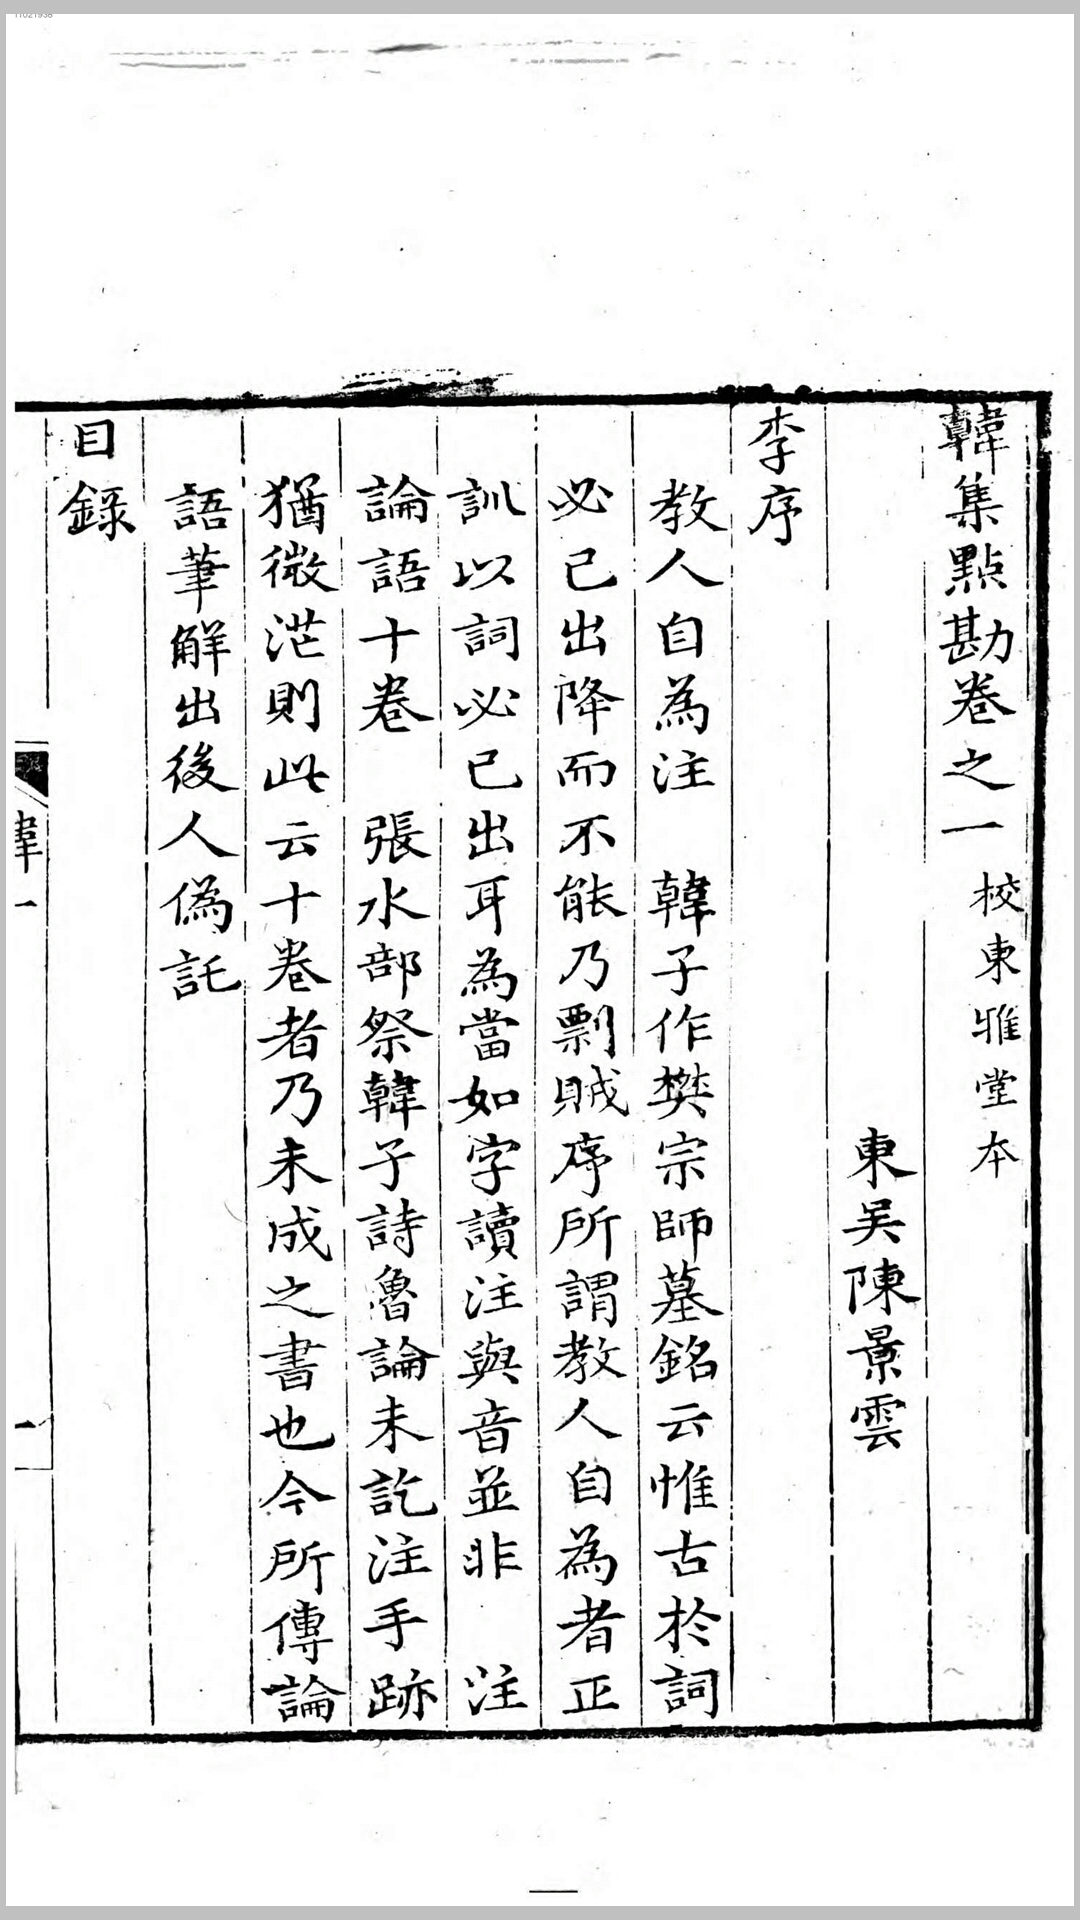 11021938
韓集點勘卷之一 校東雅堂本
東吴陳景雲
李序
教人自為注 韓子作樊宗師墓銘云惟古於詞
必已出降而不能乃剽賊序所謂教人自為者正
訓以詞必已出耳為當如字讀注與音並非 注
論語十卷 張水部祭韓子詩魯論未訖注手跡
猶微茫則此云十卷者乃未成之書也今所傳論
語筆解出後人偽託
目錄
韓一
一